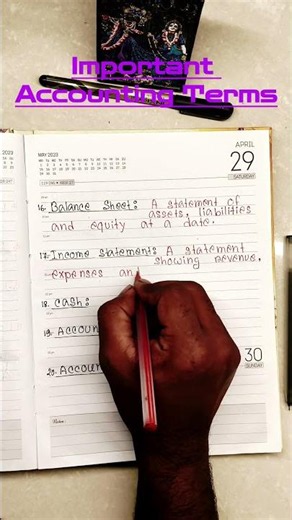 Important
Accounting Terms
MAY 2023
APRIL
29
SATURDAY
16. Balance Sheet: A statement of
assets, liabilities
and equity at a date.
17. Income statement: A statement
showing revenue,
expenses an
18. Cash:
19. Accoun
20. Accoun
30
SUNDAY
Notes